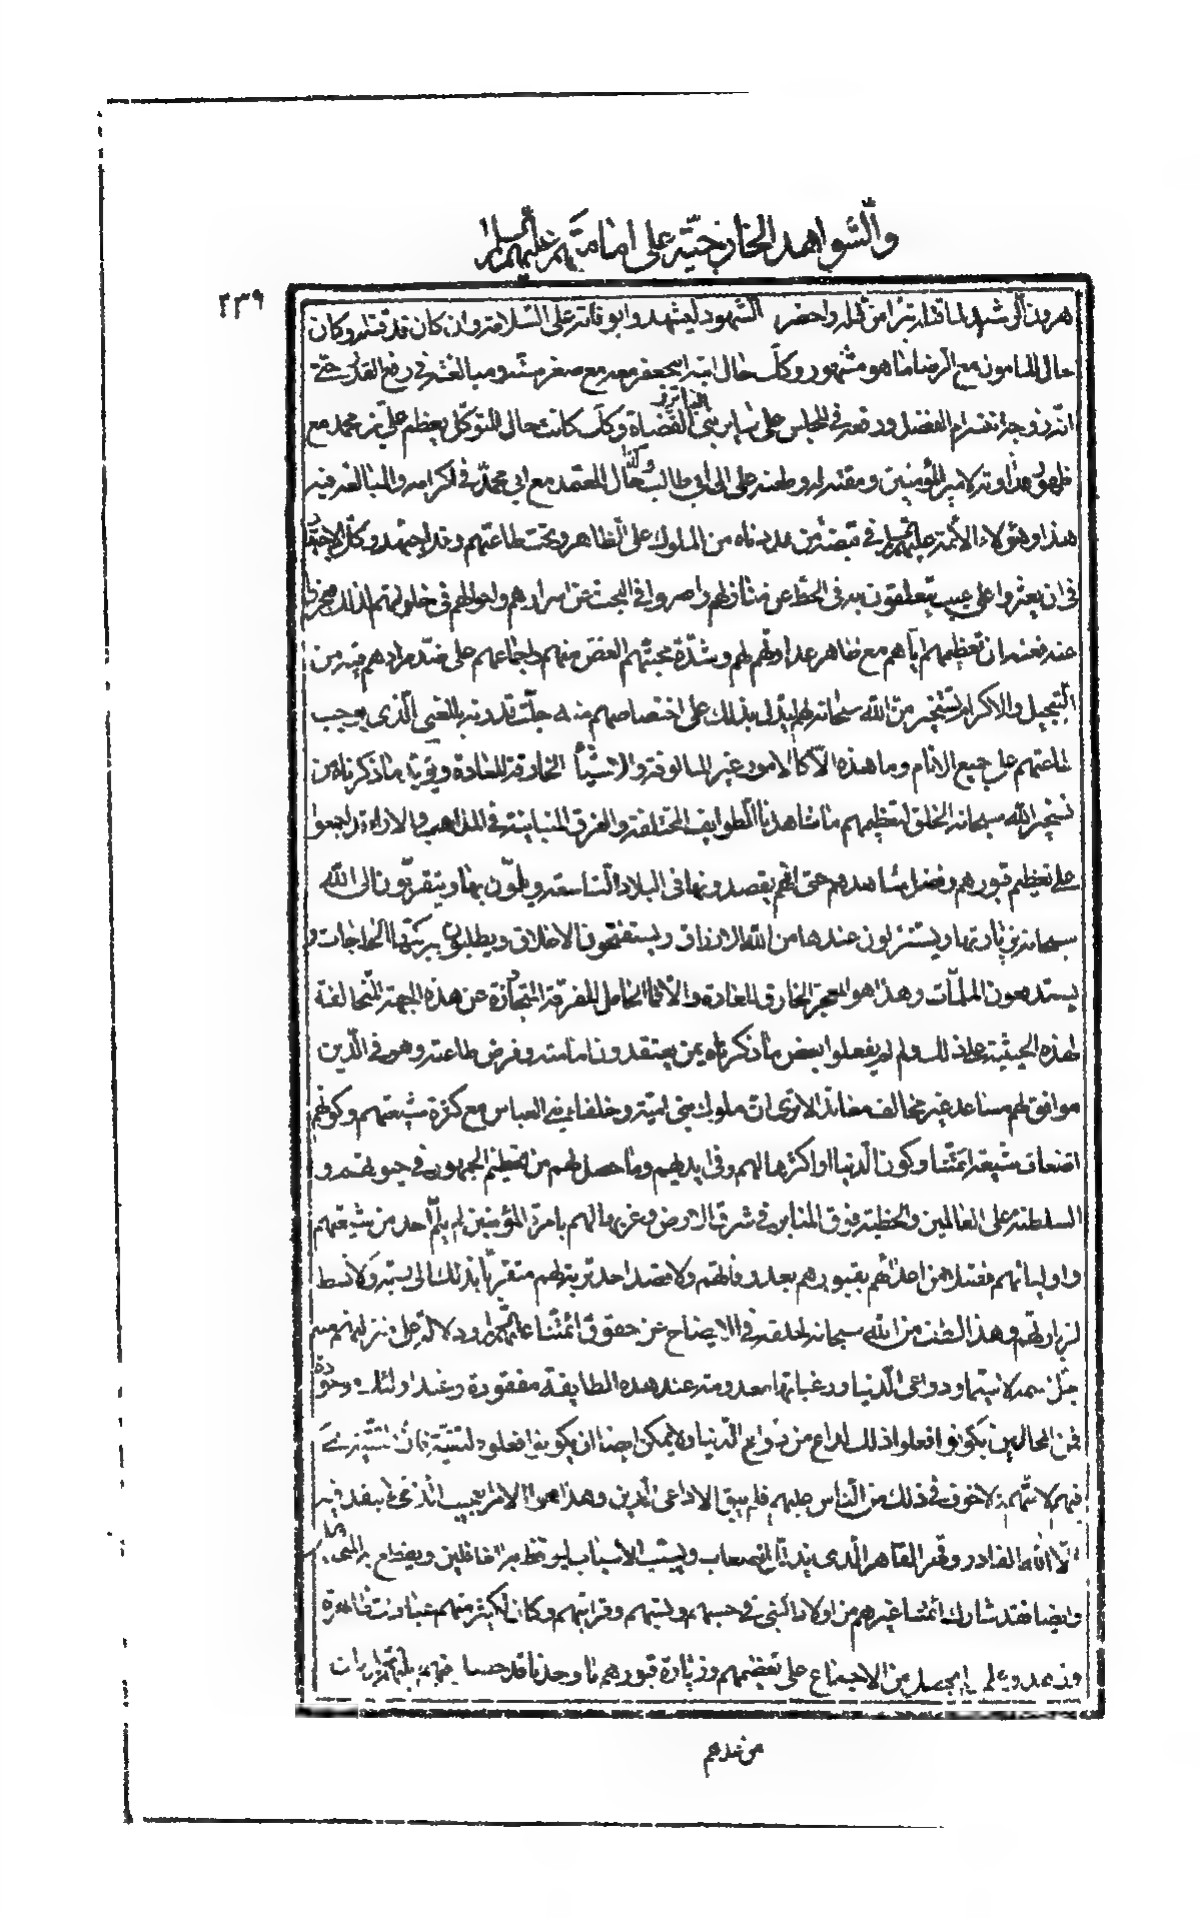 والشواهد الخارجية على امامتهم عليهم السلام
٢٣٩
هرون الرشيد لما قتله تبرأ من قتله واحضر الشهود ليشهدوا بوفاته على السلامة وان كان قد قتله وكان
حال المامون مع الرضا ما هو مشهور وكك حال ابنه ابيجعفر معه مع صغر سنه ومبالغته في رفع القدر حتى
انه زوجه ابنته ام الفضل ورفعه في المجلس على ساير بني العباس والقضاة وكك كانت حال المتوكل يعظم علي بن محمد مع
ظهور عداوته لامير المؤمنين ومقته له وطعنه على آل ابي طالب وكذا حال المعتمد مع ابي محمد في اكرامه والمبالغة فيه
هذا وهؤلاء الأئمة عليهم السلام في قبضة من عددناه من الملوك على الظاهر وتحت طاعتهم وقد اجتهدوا كل الاجتهاد
في ان يعثروا على عيب يتعلقون به في الحط عن منازلهم واصروا في البحث عن اسرارهم واحوالهم في خلواتهم لذلك فعجزوا
عنه فعلمنا ان تعظيمهم اياهم مع ظاهر عداوتهم لهم وشدة محبتهم الغض منهم واجماعهم على ضد مرادهم فيه من
التبجيل والاكرام تسخير من الله سبحانه لهم ليدل بذلك على اختصاصهم منه جلت قدرته بالمعنى الذي يوجب
طاعتهم على جميع الانام وما هذه الا كالامور غير المالوفة والاشياء الخارقة للعادة ويؤيد ما ذكرناه من
تسخير الله سبحانه الخلق لتعظيمهم ما شاهدنا الطوايف المختلفة والفرق المتباينة في المذاهب والاراء قد اجمعوا
على تعظيم قبورهم وفضل مشاهدهم حتى انهم يقصدونها في البلاد الشاسعة ويلمون بها ويتقربون الى الله
سبحانه بزيارتها ويستنزلون عندها من الله الارزاق ويستفتحون الاغلاق ويطلبون ببركتها الحاجات و
يستدفعون الملمات وهذا هو المعجز الخارق للعادة والا فما الحامل للفرقة المنحازة عن هذه الجهة المخالفة
لهذه الحيثية على ذلك ولم لم يفعلوا ببعض ما ذكرناه بمن يعتقدون امامته وفرض طاعته وهو في الدين
موافق لهم مساعد غير مخالف معاند الا ترى ان ملوك بني امية وخلفاء بني العباس مع كثرة شيعتهم وكونهم
اضعاف شيعة ائمتنا وكون الدنيا او اكثرها لهم وفي ايديهم وما حصل لهم من تعظيم الجمهور في حيوتهم و
السلطنة على العالمين والخطبة فوق المنابر في شرق الارض وغربها لهم بامرة المؤمنين لم يلم احد من شيعتهم
واوليائهم فضلا من اعدائهم بقبورهم بعد وفاتهم ولا قصد احد تربة لهم متقربا بذلك الى ربه ولا نشط
لزيارتهم وهذا لطف من الله سبحانه لخلقه في الايضاح عن حقوق ائمتنا عليهم السلام ودلالة على علو منزلتهم منه
جل اسمه لا سيما ودواعي الدنيا ورغباتها معدومة عند هذه الطايفة مفقودة وعند اولئك موجودة
فمن المحال ان يكونوا فعلوا ذلك لداع من دواعي الدنيا ولا يمكن ايضا ان يكونوا فعلوه لتقية فان التقية هي
فيهم لا منهم ولا خوف في ذلك من الناس جلهم فلم يبق الا داعي الدين وهذا هو الامر العجيب الذي لا ينفذ فيه
الا الله القادر وقهر القاهر الذي يذلل الصعاب ويسبب الاسباب ليوقظ به الغافلين ويقطع به
وايضا فقد شارك ائمتنا غيرهم من اولاد النبي في حسبهم ونسبهم وقرابتهم وكان لكثير منهم عبادات ظاهرة
وزهد وعلم ولم يحصل من الاجماع على تعظيمهم وزيارة قبورهم ما وجدناه قد حصل فيهم
من عداهم